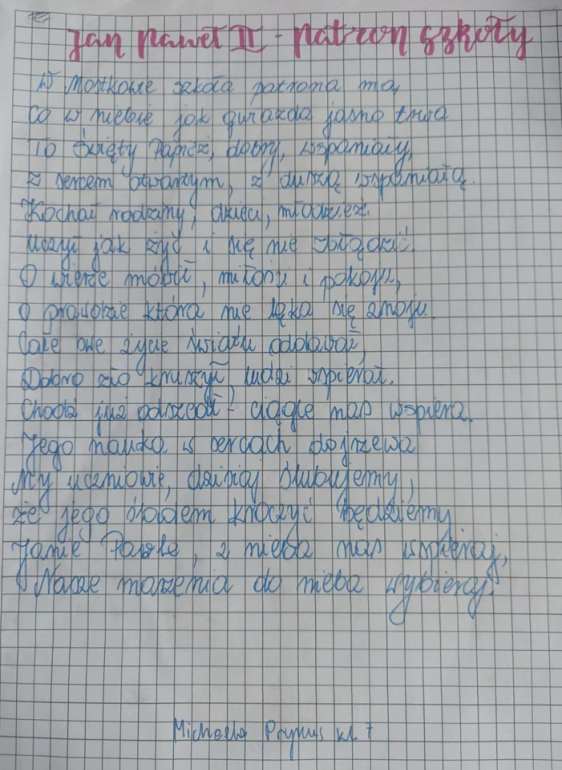 Jan Paweł II - patron szkoły
W Morkowie szkoła patrona ma,
Co w niebie jak gwiazda jasno trwa
To Święty Papież, dobry, wspaniały,
z sercem otwartym, z duszą wspaniałą.
Kochał rodziny, dzieci, młodzież
Uczył jak żyć i się nie
O wierze mówił, miłości i pokoju,
O prawdzie która nie lęka się znoju.
Całe swe życie światu oddawał
Dobro zło kruszył, ludzi wspierał.
Chodź już odszedł - ciągle nas wspiera.
Jego nauka w sercach dojrzewa
My uczniowie, dzisiaj ślubujemy,
że jego śladem kroczyć będziemy
Janie Pawle, z nieba nas wspieraj,
Nasze marzenia do nieba wybieraj.
kl. 7